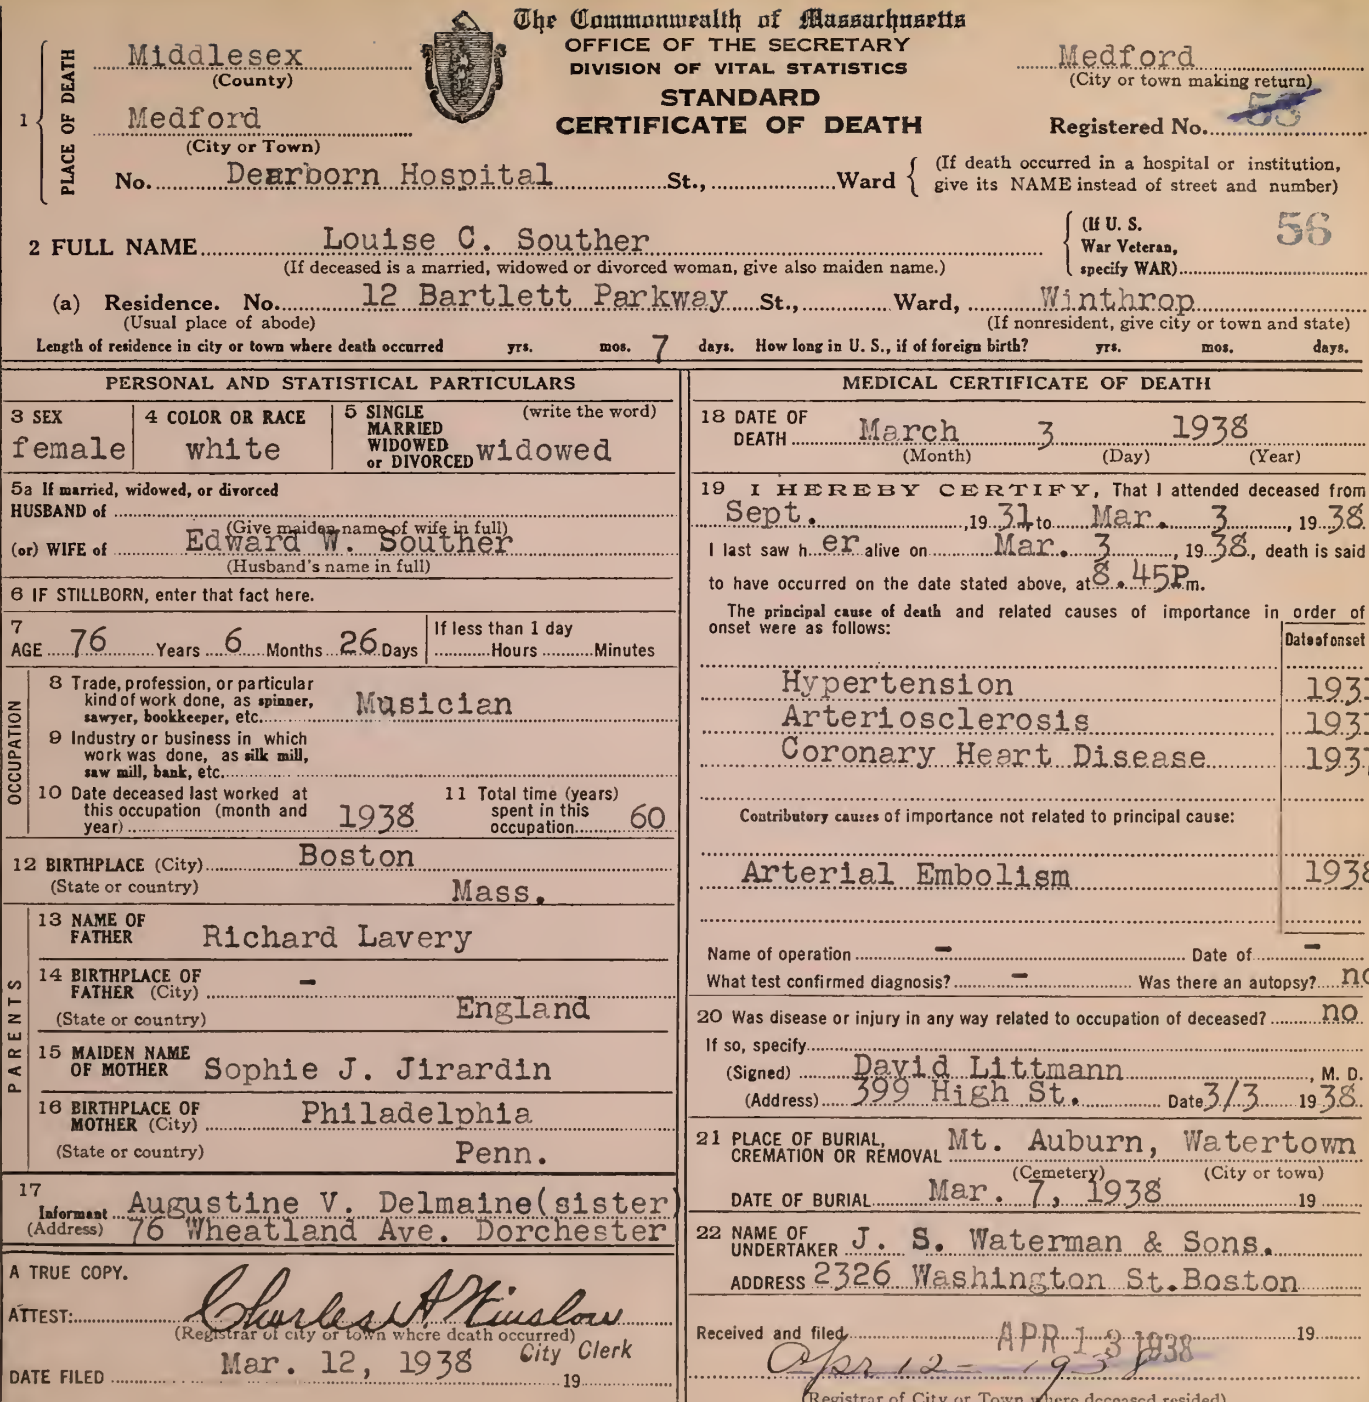 The Commonwealth of Massachusetts
OFFICE OF THE SECRETARY
DIVISION OF VITAL STATISTICS
STANDARD
CERTIFICATE OF DEATH
1 PLACE OF DEATH
Middlesex
(County)
Medford
(City or Town)
Medford
(City or town making return)
Registered No.
No. Dearborn Hospital St., Ward { (If death occurred in a hospital or institution,
give its NAME instead of street and number)
2 FULL NAME Louise C. Souther
(If deceased is a married, widowed or divorced woman, give also maiden name.)
(If U. S.
War Veteran,
specify WAR)
56
(a) Residence. No. 12 Bartlett Parkway St., Ward, Winthrop
(Usual place of abode) (If nonresident, give city or town and state)
Length of residence in city or town where death occurred yrs. mos. 7 days. How long in U. S., if of foreign birth? yrs. mos. days.
PERSONAL AND STATISTICAL PARTICULARS
3 SEX
female
4 COLOR OR RACE
white
5 SINGLE (write the word)
MARRIED
WIDOWED
or DIVORCED widowed
5a If married, widowed, or divorced
HUSBAND of
(Give maiden name of wife in full)
(or) WIFE of Edward W. Souther
(Husband's name in full)
6 IF STILLBORN, enter that fact here.
7
AGE 76 Years 6 Months 26 Days
If less than 1 day
Hours Minutes
OCCUPATION
8 Trade, profession, or particular
kind of work done, as spinner,
sawyer, bookkeeper, etc. Musician
9 Industry or business in which
work was done, as silk mill,
saw mill, bank, etc.
10 Date deceased last worked at
this occupation (month and
year) 1938
11 Total time (years)
spent in this
occupation 60
12 BIRTHPLACE (City) Boston
(State or country) Mass.
PARENTS
13 NAME OF
FATHER Richard Lavery
14 BIRTHPLACE OF
FATHER (City) -
(State or country) England
15 MAIDEN NAME
OF MOTHER Sophie J. Jirardin
16 BIRTHPLACE OF
MOTHER (City) Philadelphia
(State or country) Penn.
17
Informant Augustine V. Delmaine(sister)
(Address) 76 Wheatland Ave. Dorchester
A TRUE COPY.
ATTEST: Charles A. Winslow
(Registrar of city or town where death occurred)
City Clerk
DATE FILED Mar. 12, 1938 19
MEDICAL CERTIFICATE OF DEATH
18 DATE OF
DEATH March 3 1938
(Month) (Day) (Year)
19 I HEREBY CERTIFY, That I attended deceased from
Sept. , 19 31 to Mar. 3 , 19 38
I last saw her alive on Mar. 3 , 19 38, death is said
to have occurred on the date stated above, at 8.45P.m.
The principal cause of death and related causes of importance in order of
onset were as follows:
Date of onset
Hypertension
Arteriosclerosis
Coronary Heart Disease
Contributory causes of importance not related to principal cause:
Arterial Embolism 1938
Name of operation - Date of -
What test confirmed diagnosis? - Was there an autopsy? no
20 Was disease or injury in any way related to occupation of deceased? no
If so, specify
(Signed) David Littmann , M. D.
(Address) 399 High St. Date 3/3 19 38
21 PLACE OF BURIAL,
CREMATION OR REMOVAL Mt. Auburn, Watertown
(Cemetery) (City or town)
DATE OF BURIAL Mar. 7, 1938 19
22 NAME OF
UNDERTAKER J. S. Waterman & Sons.
ADDRESS 2326 Washington St.Boston
Received and filed APR 13 1938 19
Apr 12 - 1938
(Registrar of City or Town where deceased resided)